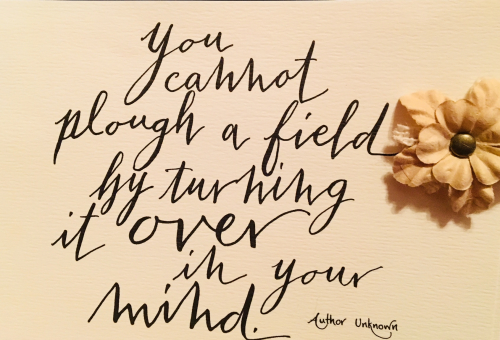 You
cannot
plough a field
by turning
it over
in your
mind.
Author Unknown